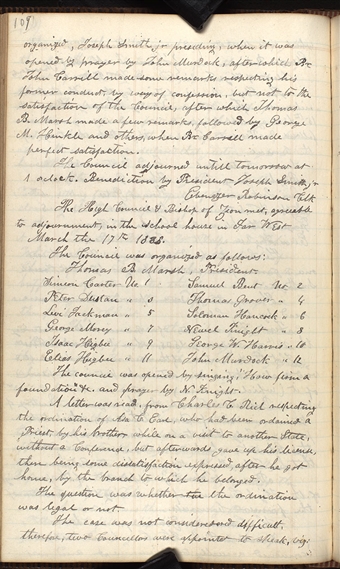 109
organized, Joseph Smith jr presiding, when it was
opened by prayer by John Murdock, after which Br
John Carrill made some remarks respecting his
former conduct, by way of confession, but not to the
satisfaction of the Council, after which Thomas
B. Marsh made a few remarks, followed by George
M. Hinkle and others, when Br Carrill made
perfect satisfaction.
The Council adjourned untill tomorrow at
1 oclock. Benediction by President Joseph Smith jr
Ebenezer Robinson Clk
The High Council & Bishop of Zion met, agreeable
to adjournment, in the school house in Far West
March the 17th 1838.
The Council was organized as follows:
Thomas B. Marsh, President.
Simeon Carter No 1 Samuel Bent No. 2
Peter Dustan " 3 Thomas Grover " 4
Levi Jackman " 5 Solomon Hancock " 6
George Morey " 7 Newel Knight " 8
Isaac Higbee " 9 George W. Harris " 10
Elias Higbee " 11 John Murdock " 12
The council was opened by singing, "How firm a
foundation &c. and prayer by N. Knight.
A letter was read, from Charles C. Rich respecting
the ordination of C. Earl, who had been ordained a
Priest, by his brother while on a visit to another State,
without a Conference, but afterwards gave up his license,
there being some dissatisfaction expressed, after he got
home, by the branch to which he belonged.
The question was whether the ordination
was legal or not.
The case was not considered difficult,
therefore, two Councillors were appointed to speak, viz: